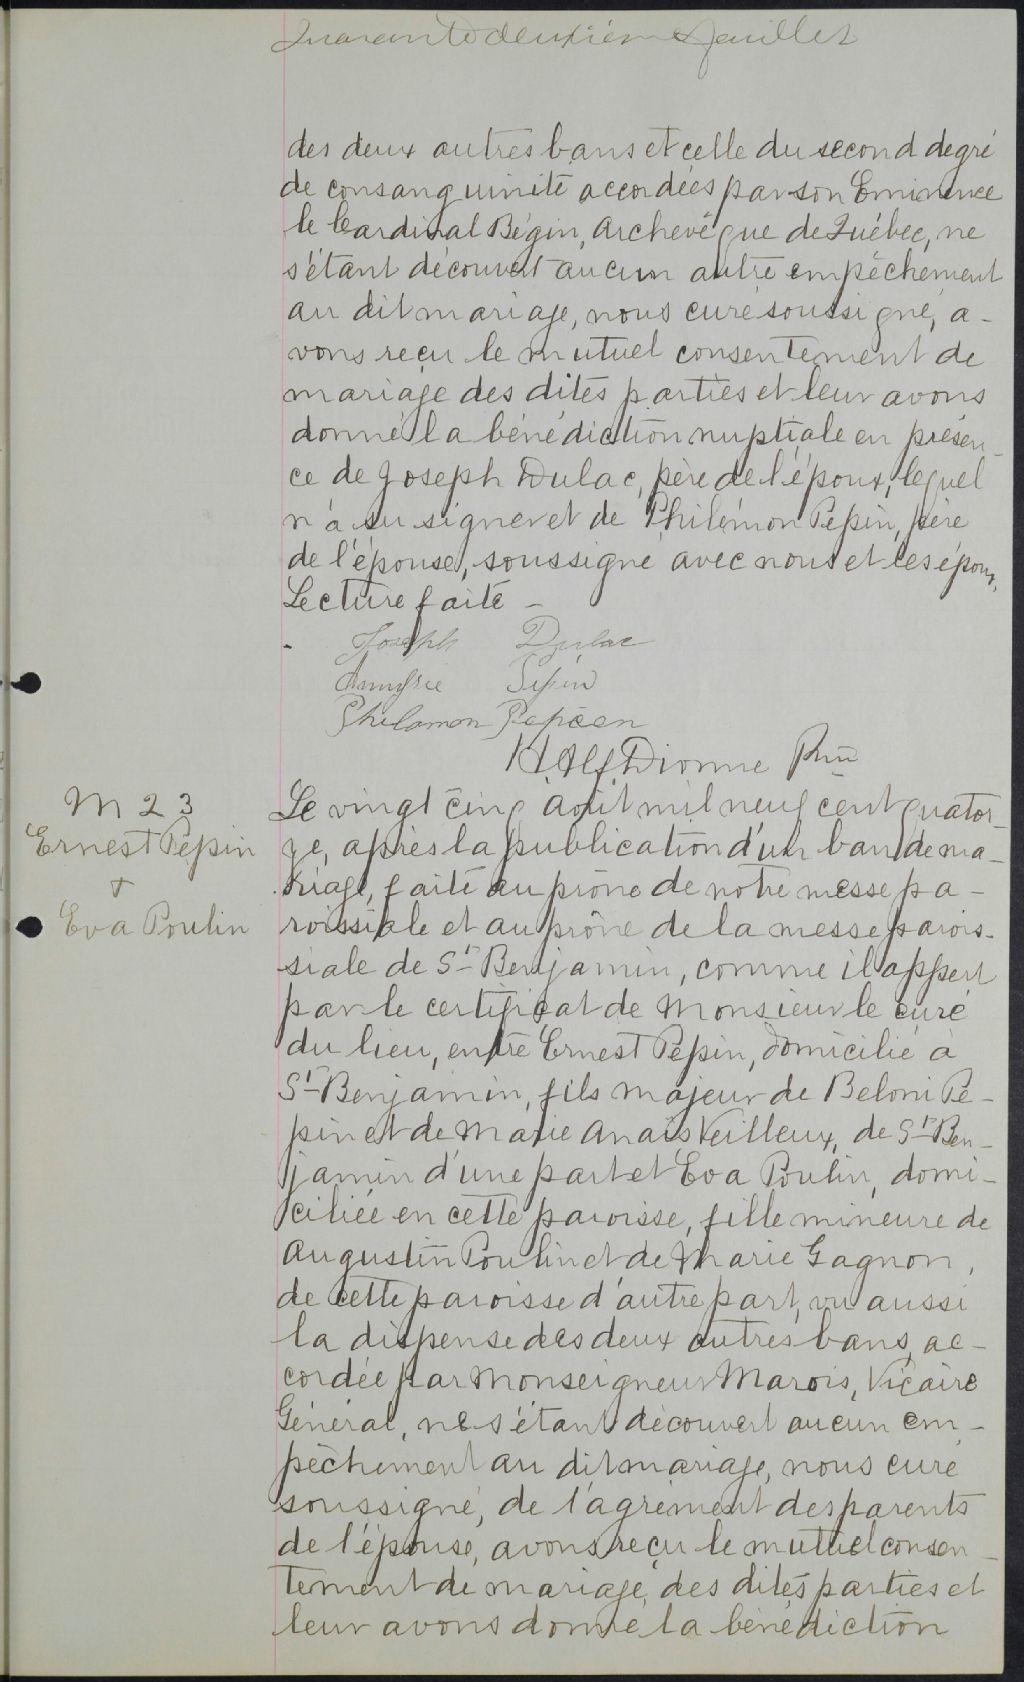 Quarante deuxième feuillet
des deux autres bans et celle du second degré
de consanguinité accordées par son Eminence
le Cardinal Bégin, Archevêque de Québec, ne
s'étant découvert aucun autre empêchement
au dit mariage, nous curé soussigné, a-
vons reçu le mutuel consentement de
mariage des dites parties et leur avons
donné la bénédiction nuptiale en présen-
ce de Joseph Dulac, père de l'époux, lequel
n'a su signer et de Philémon Pepin, père
de l'épouse, soussigné avec nous et les époux.
Lecture faite -
Joseph Dulac
Pepin
Philamon Papien
H. Alf Dionne Ptre
M 23
Ernest Pepin
+
Eva Poulin
Le vingt cinq août mil neuf cent quator-
ze, après la publication d'un ban de ma-
riage, faite au prône de notre messe pa-
roissiale et au prône de la messe parois-
siale de St Benjamin, comme il appert
par le certificat de Monsieur le curé
du lieu, entre Ernest Pepin, domicilié à
St Benjamin, fils majeur de Beloni Pe-
pin et de Marie Anaïs Veilleux, de St Ben-
jamin d'une part et Eva Poulin, domi-
ciliée en cette paroisse, fille mineure de
Augustin Poulin et de Marie Gagnon,
de cette paroisse d'autre part, vu aussi
la dispense des deux autres bans, ac-
cordée par Monseigneur Marois, Vicaire
Général, ne s'étant découvert aucun em-
pêchement au dit mariage, nous curé
soussigné, de l'agrément des parents
de l'épouse, avons reçu le mutuel consen-
tement de mariage, des dites parties et
leur avons donné la bénédiction